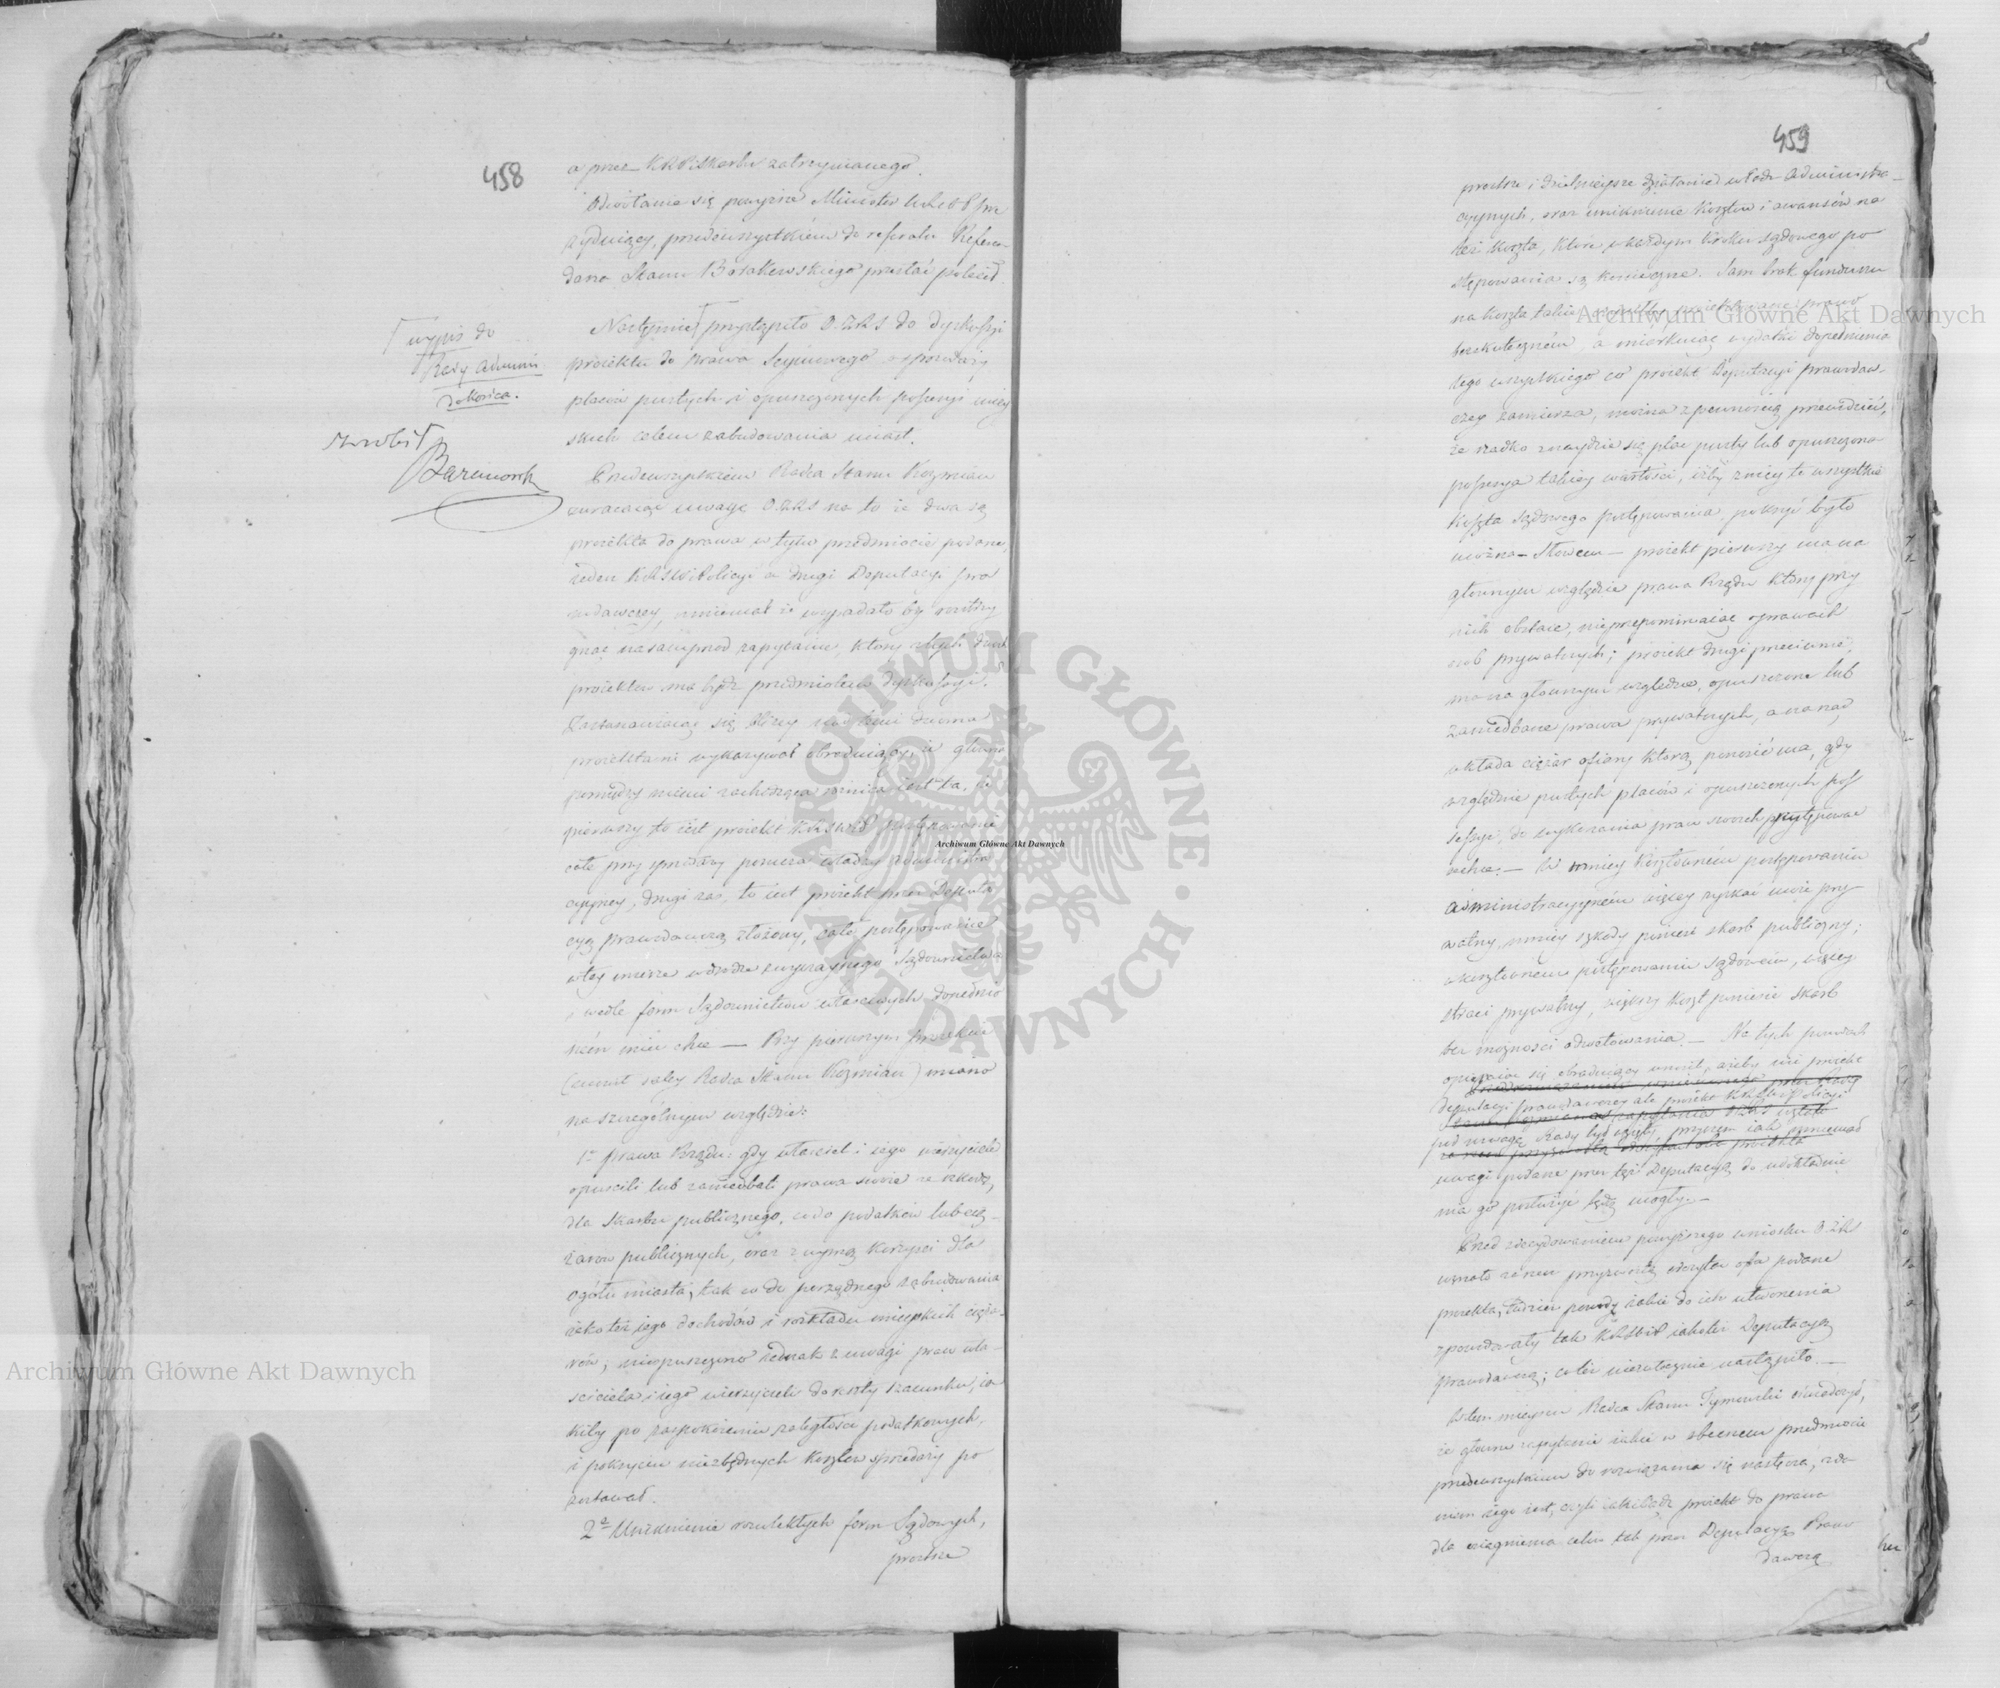 458
a przez KRPiSkarbu zatrzymanego.
Odwołanie się powyższe Minister
rzydniący, przedewszystkiém do referatu Referen-
darza Stanu przesłać polecił.
wypis do
Rady Admini
do końca.
zrobił
Następnie przystąpiło O.Z.R.S do dyskussyi
proiektu do prawa Seymowego o sprzedaży
placów pustych i opuszczonych possessyi miey
skich celem zabudowania miast.
Przedewszystkiem Radca Stanu Kozmian
zwracaiąc uwagę O.Z.R.S na to że dwa są
proiekta do prawa w tym przedmiocie podane,
ieden KRSWiPolicyi a drugi Deputacyi pra
wodawczey, mniemał iż wypadało by roztrzy
gnąć nasamprzod zapytanie, który z tych dwóch
proiektów ma bydź przedmiotem dyskussyi.
Zastanawiaiąc się bliżey nad temi dwoma
proiektami wykazywał obradniący, że główna
pomiędzy niemi zachodząca roznica iest ta, iż
pierwszy to iest proiekt KRSWiP postępowanie
całe przy sprzedaży porucza władzy administra
cyyney, drugi zaś, to iest proiekt przez Deputa
cyą prawodawczą złożony, całe postępowanie
w tey mierze w drodze zwyczaynego Sądownictwa
i wedle form Sądownictwu właściwych dopełnio
ném mieć chce — Przy pierwszym proiekcie
(mówił daley Radca Stanu Kozmian) miano
na szczególnym względzie:
1o Prawa Rządu: gdy właściciel i iego wierzyciele
opuścili lub zaniedbali prawa swoie ze szkodą,
dla Skarbu publicznego, co do podatków lub cię-
żarów publicznych, oraz z uymą korzyści dla
ogółu miasta, tak co do porządnego zabudowania
iako też iego dochodów i rozkładu mieyskich cięża-
rów; nieopuszczono iednak z uwagi praw wła-
ściciela i iego wierzycieli do reszty szacunku, ia
kiby po zaspokoieniu zaległości podatkowych,
i pokryciu niezbędnych kosztów sprzedaży po
zostawał.
2o Uniknienie rozwlekłych form Sądowych,
prostsze
459
prostsze i dzielnieysze działanie władz administra-
cyynych, oraz uniknienie kosztów i awansów na
też koszta, które w każdym kroku sądowego po
stępowania są konieczne. Sam brak funduszu
na koszta takie prawo
bezskuteczném, a miarkuiąc wydatki dopełnienia
tego wszystkiego co proiekt Deputacyi prawodaw-
czey zamierza, można z pewnością przewidzieć,
że rzadko znaydzie się plac pusty lub opuszczona
possessya takiey wartości, iżby z niey te wszystkie
koszta sądowego postępowania pokryć było
można — Słowem — proiekt pierwszy ma na
głównym względzie prawa Rządu który przy
nich obstaie, nieprzepominaiąc o prawach
osób prywatnych; proiekt drugi przeciwnie,
ma na głównym względzie, opuszczone lub
zaniedbane prawa prywatnych, a na rząd
wkłada ciężar ofiary którą ponosić ma, gdy
względnie pustych placów i opuszczonych pos
sessyi, do wykonania praw swoich przystępować
zechce. — W mniey kosztowném postępowaniu
administracyyném więcey zyskać może pry-
watny, mniey szkody poniesie skarb publiczny;
w kosztowném postępowaniu sądowém, więcey
straci prywatny, większy koszt poniesie skarb
bez możności odzyskania — Na tych powodach
opieraiąc się obraduiący wnosił, ażeby nie proiekt
Deputacyi prawodawczey ale proiekt KRSWiPolicyi
pod uwagę Rady był wzięty, przyczem iak mniemał
uwagi podane przez też Deputacyą do udokładnie
nia go posłużyć będą mogły. —
Przed zdecydowaniem powyższego wniosku O.Z.R
uznało za rzecz przyzwoitą odczytać oba podane
proiekta, tudzież powody iakie do ich utworzenia
spowodowały tak KRSWiP iakoteż Deputacyą
prawodawczą; co też niezwłocznie nastąpiło. —
W tem mieyscu Radca Stanu Tymowski oświadczył,
że główne zapytanie iakie w obecnem przedmiocie
przedewszystkiem do rozwiązania się nastręcza, zda
niem iego iest, czyli iakikolwiek proiekt do prawa
dla osiągnienia celu tak przez Deputacyą Prawo
dawczą